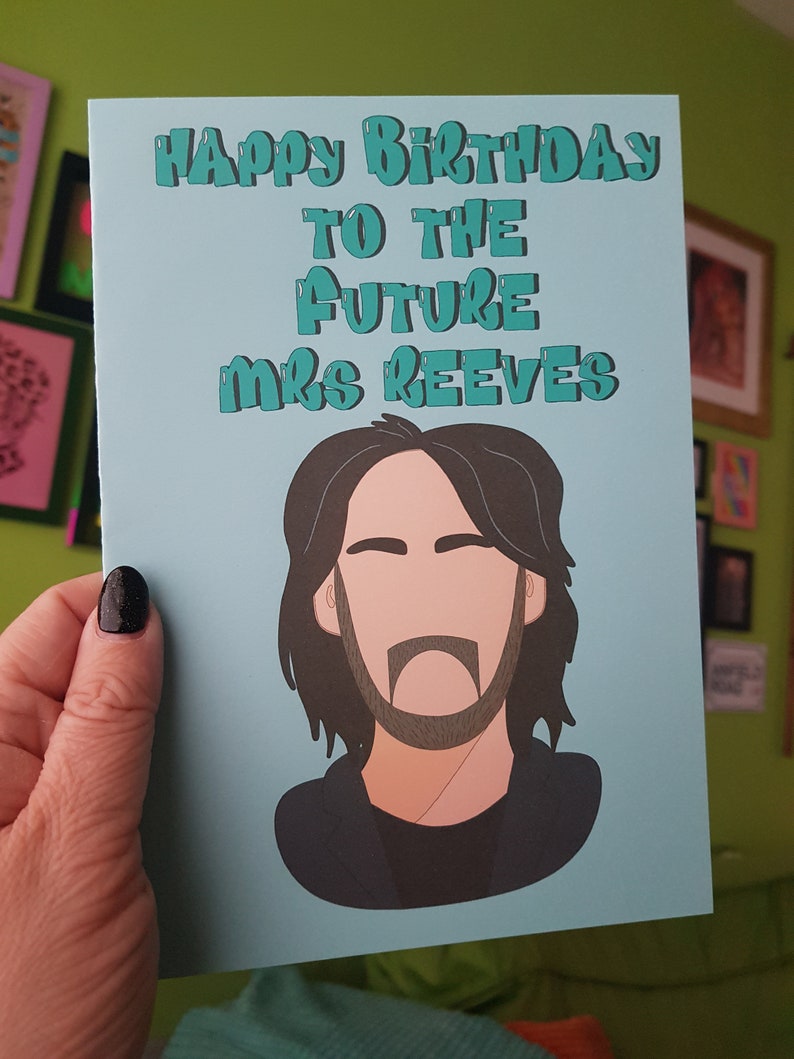 HAPPY BIRTHDAY
TO THE
FUTURE
MRS REEVES
ANFIELD
ROAD